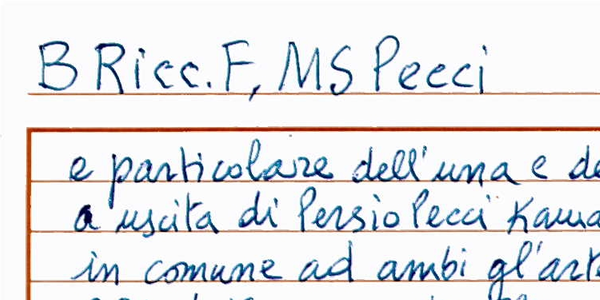 B Ricc. F, MS Pecci
e particolare dell'una e de
a uscita di Persio Pecci
in comune ad ambi gl'art